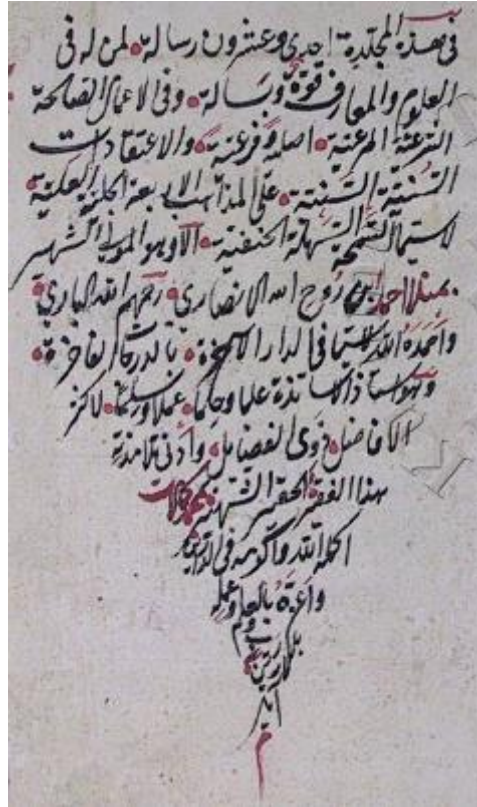 في هذه المجلدة احدى وعشرون رسالة لمن له في
العلوم والمعارف قوة وبسالة وفي الاعمال الصالحة
الشرعية المرعية اصلية وفرعية والاعتقادات
السنية السنية على المذاهب الاربعة الجلية العلية
لا سيما السمحة السهلة الحنفية الا وهو المولى الشهير
بمنلا احمد ابن روح الله الانصاري رحمهم الله الباري
واحمده الله لا سيما في الدار الآخرة بالدرجات الفاخرة
وهو استاذ الاساتذة علما وحكما عملا لاكثر
الافاضل ذوي الفضايل وادنى تلامذته
هذا الفقير الحقير الشهير
اكمله الله واكرمه في الدارين
واعزه بالعلم وعمله
رب
آمين
م